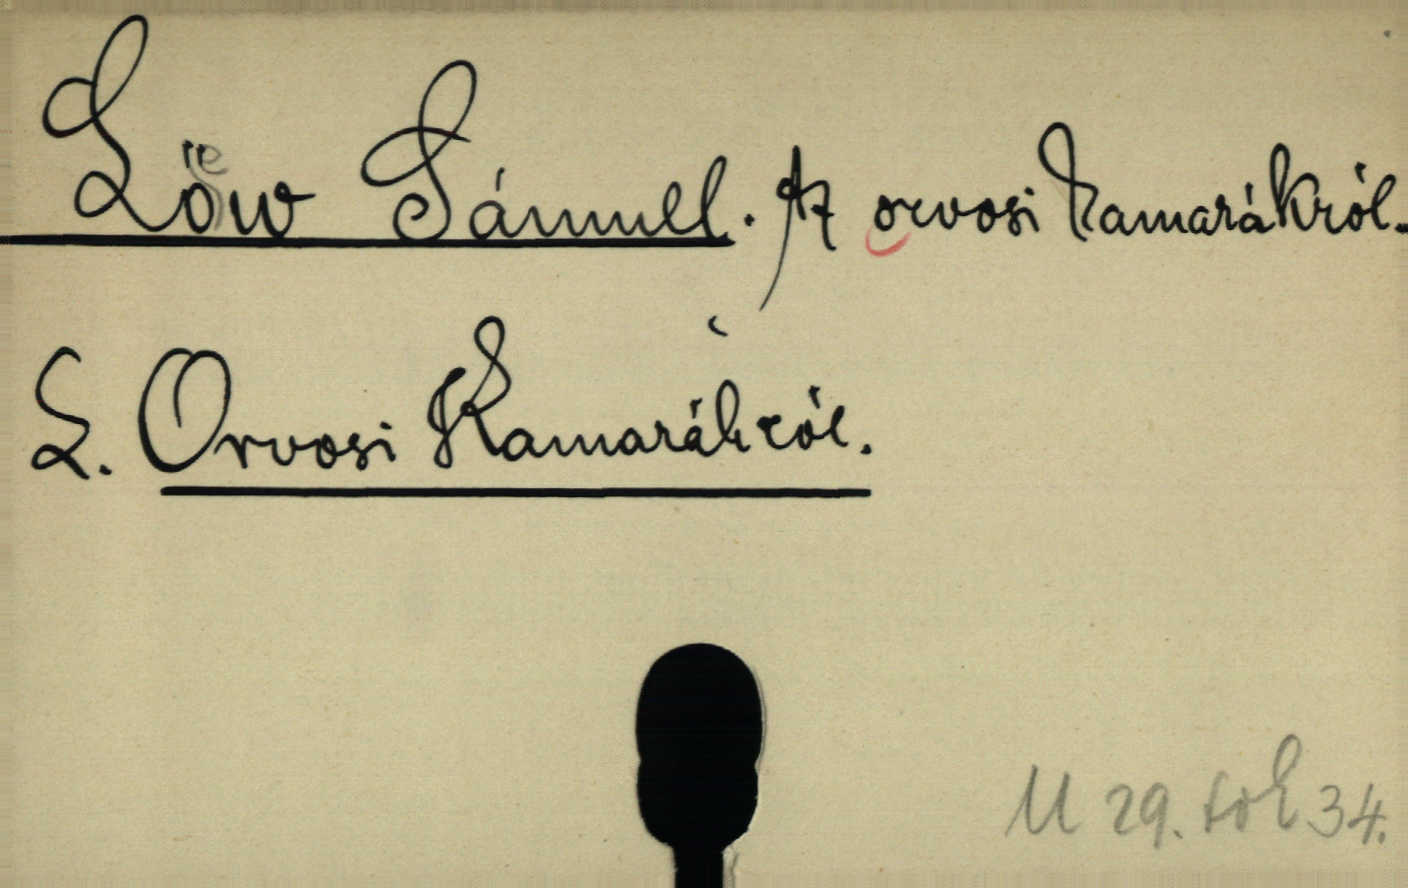 Löw Sámuel. Az orvosi kamarákról.
L. Orvosi Kamarákról.
M 29. sok 34.